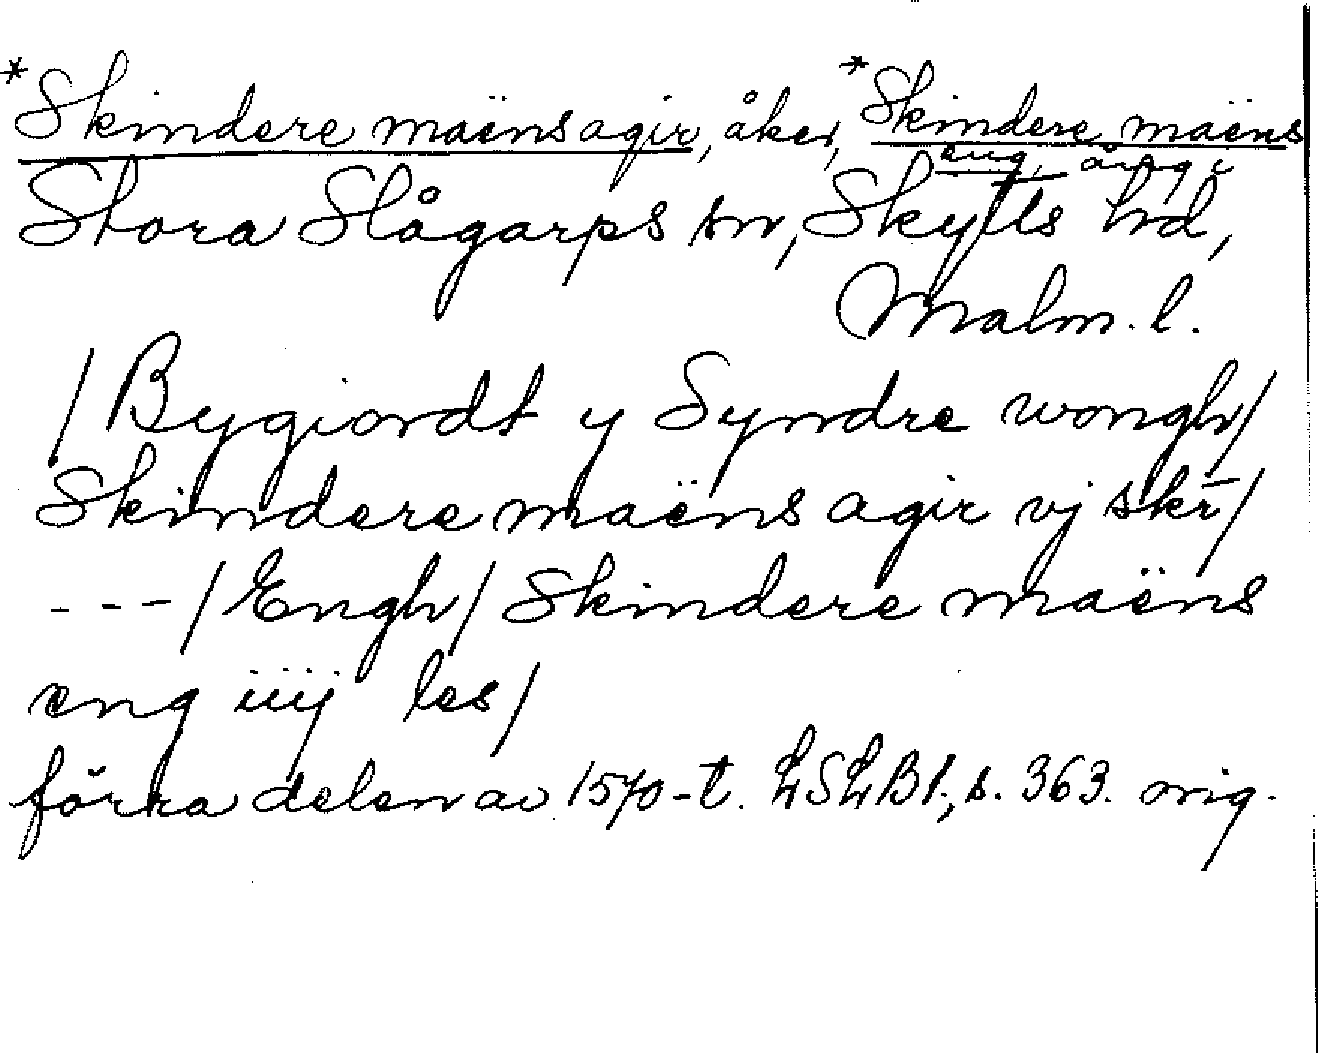 *Skindere maëns agir, åker, *Skindere maëns
eng, äng i
Stora Slågarps sn, Skytts hd,
Malm. l.
/Bygiordt y Syndre wongh/
Skindere maëns agir vj skr̄/
---/Engh/ Skindere maëns
eng iiij les/
förra delen av 1570-t. LSLB1, s. 363. orig.